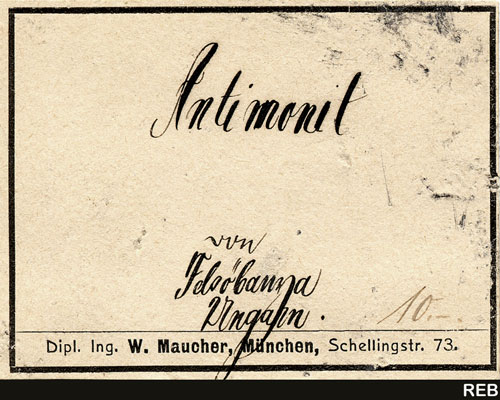 Antimonit
von
Felsőbanya
Ungarn.
10.-
Dipl. Ing. W. Maucher, München, Schellingstr. 73.
REB